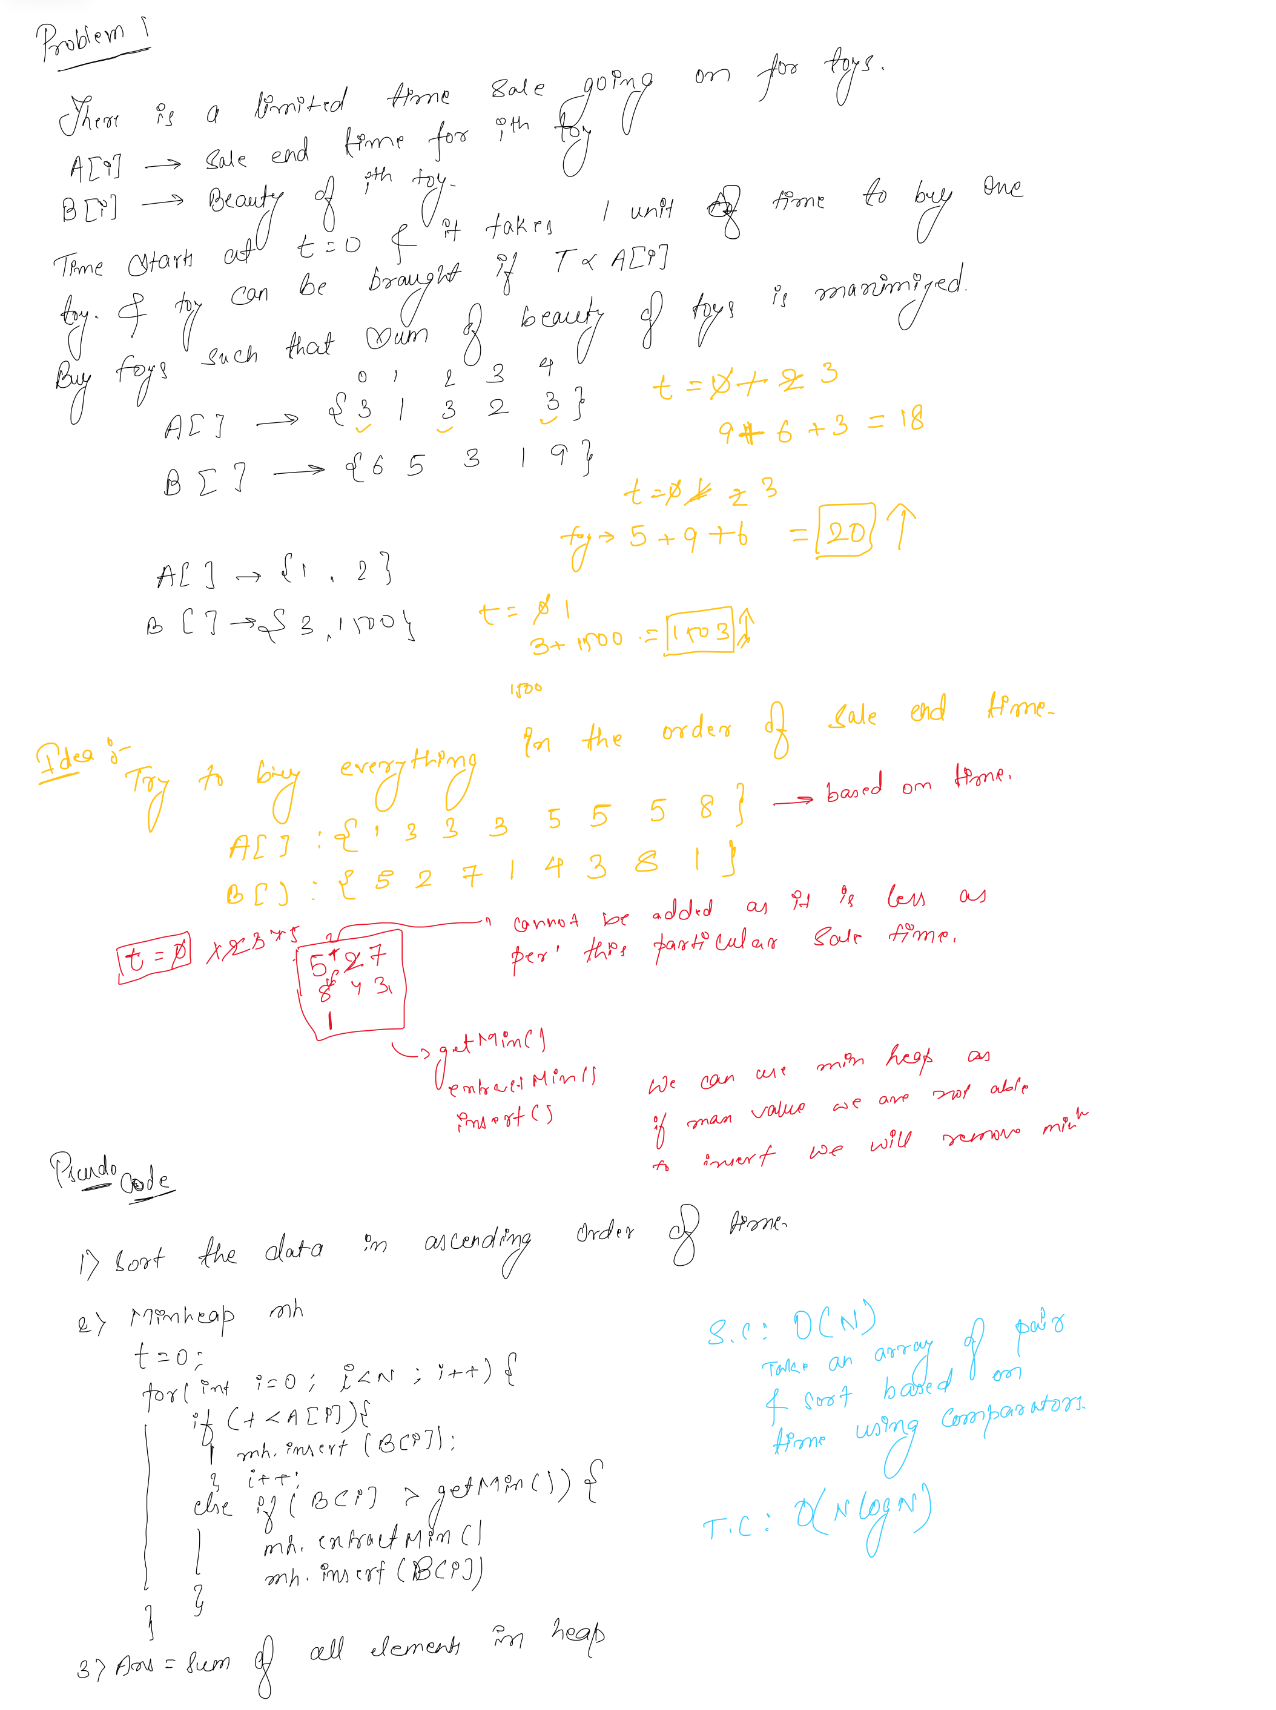 Problem 1
There is a limited time sale going on for toys.
A[i] → Sale end time for ith toy
B[i] → Beauty of ith toy.
Time starts at t=0 & it takes 1 unit of time to buy one
toy. & toy can be braught if T < A[i]
Buy toys such that sum of beauty of toys is maximized.
0 1 2 3 4
A[] → {3 1 3 2 3}
B[] → {6 5 3 1 9}
t = 0 1 2 3
9 + 6 + 3 = 18
t = 0 1 2 3
toy → 5 + 9 + 6 = 20 ↑
A[] → {1, 2}
B[] → {3, 1500}
t = 0 1
3 + 1500 = 1503 ↑
1500
Idea :- Try to buy everything in the order of sale end time.
A[] : {1 3 3 3 5 5 5 8} → based on time.
B[] : {5 2 7 1 4 3 8 1}
t = 0 1 2 3 4 5
5 2 7
8 4 3
1
cannot be added as it is less as
per this particular sale time.
→ getMin()
extractMin()
insert()
We can use min heap as
if max value we are not able
to insert we will remove min
Pseudo Code
1) Sort the data in ascending order of time.
2) Minheap mh
t=0;
for(int i=0; i<N; i++) {
if (t < A[i]) {
mh.insert (B[i]);
} t++;
else if (B[i] > getMin()) {
mh. extractMin()
mh. insert (B[i])
}
}
3) Ans = Sum of all elements in heap
S.C: O(N)
Take an array of pair
& sort based on
time using comparators.
T.C: O(N log N)